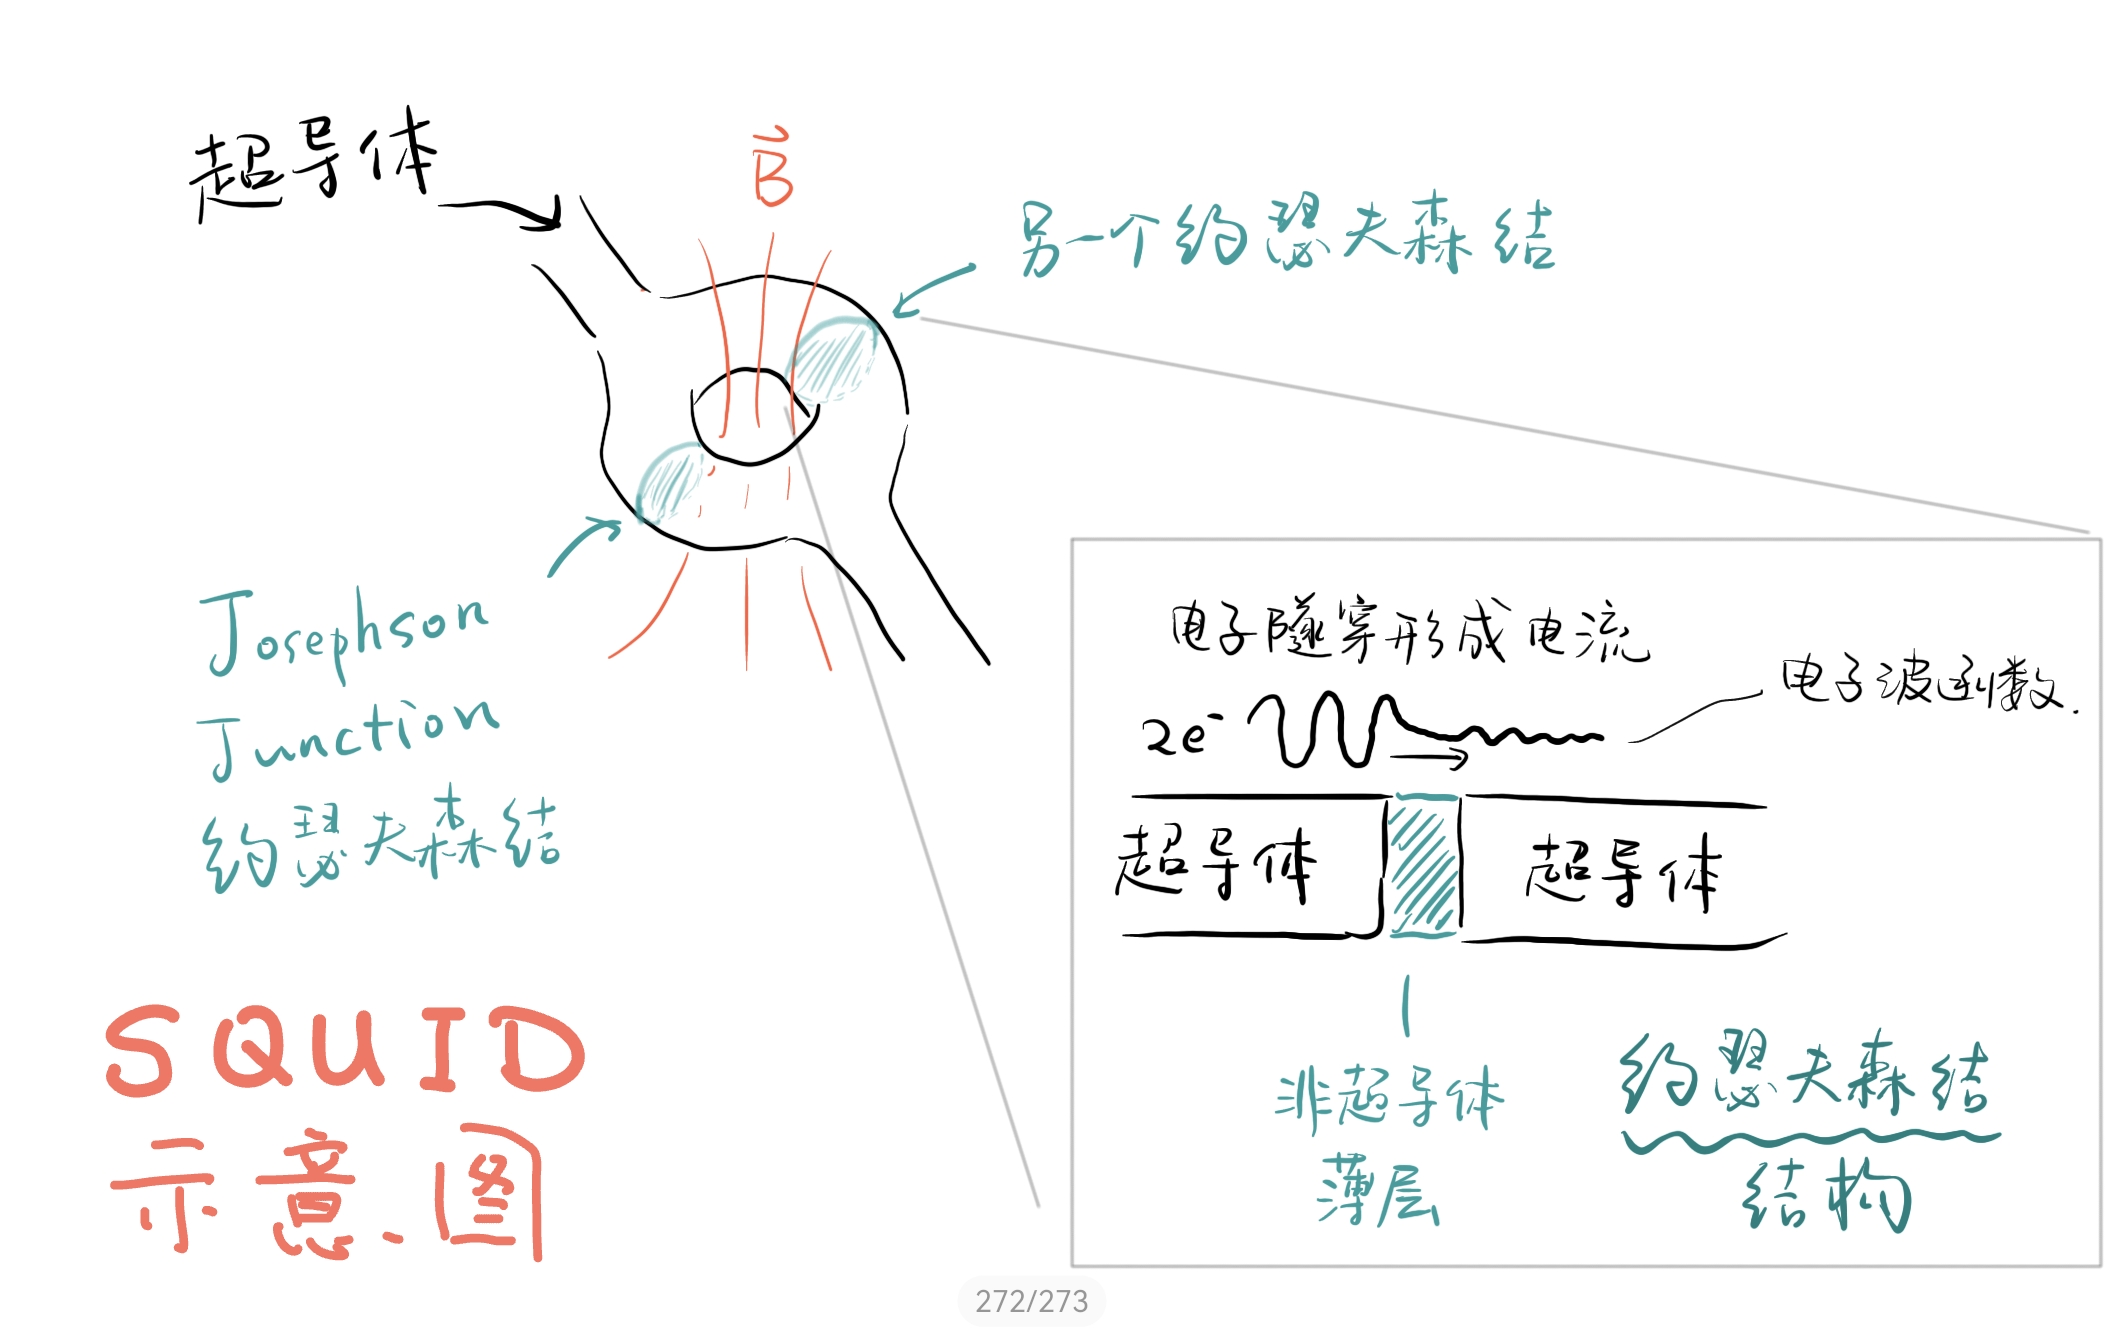 超导体
B
另一个约瑟夫森结
Josephson
Junction
约瑟夫森结
SQUID
示意图
电子隧穿形成电流
2e⁻
电子波函数.
超导体
超导体
非超导体
薄层
约瑟夫森结
结构
272/273